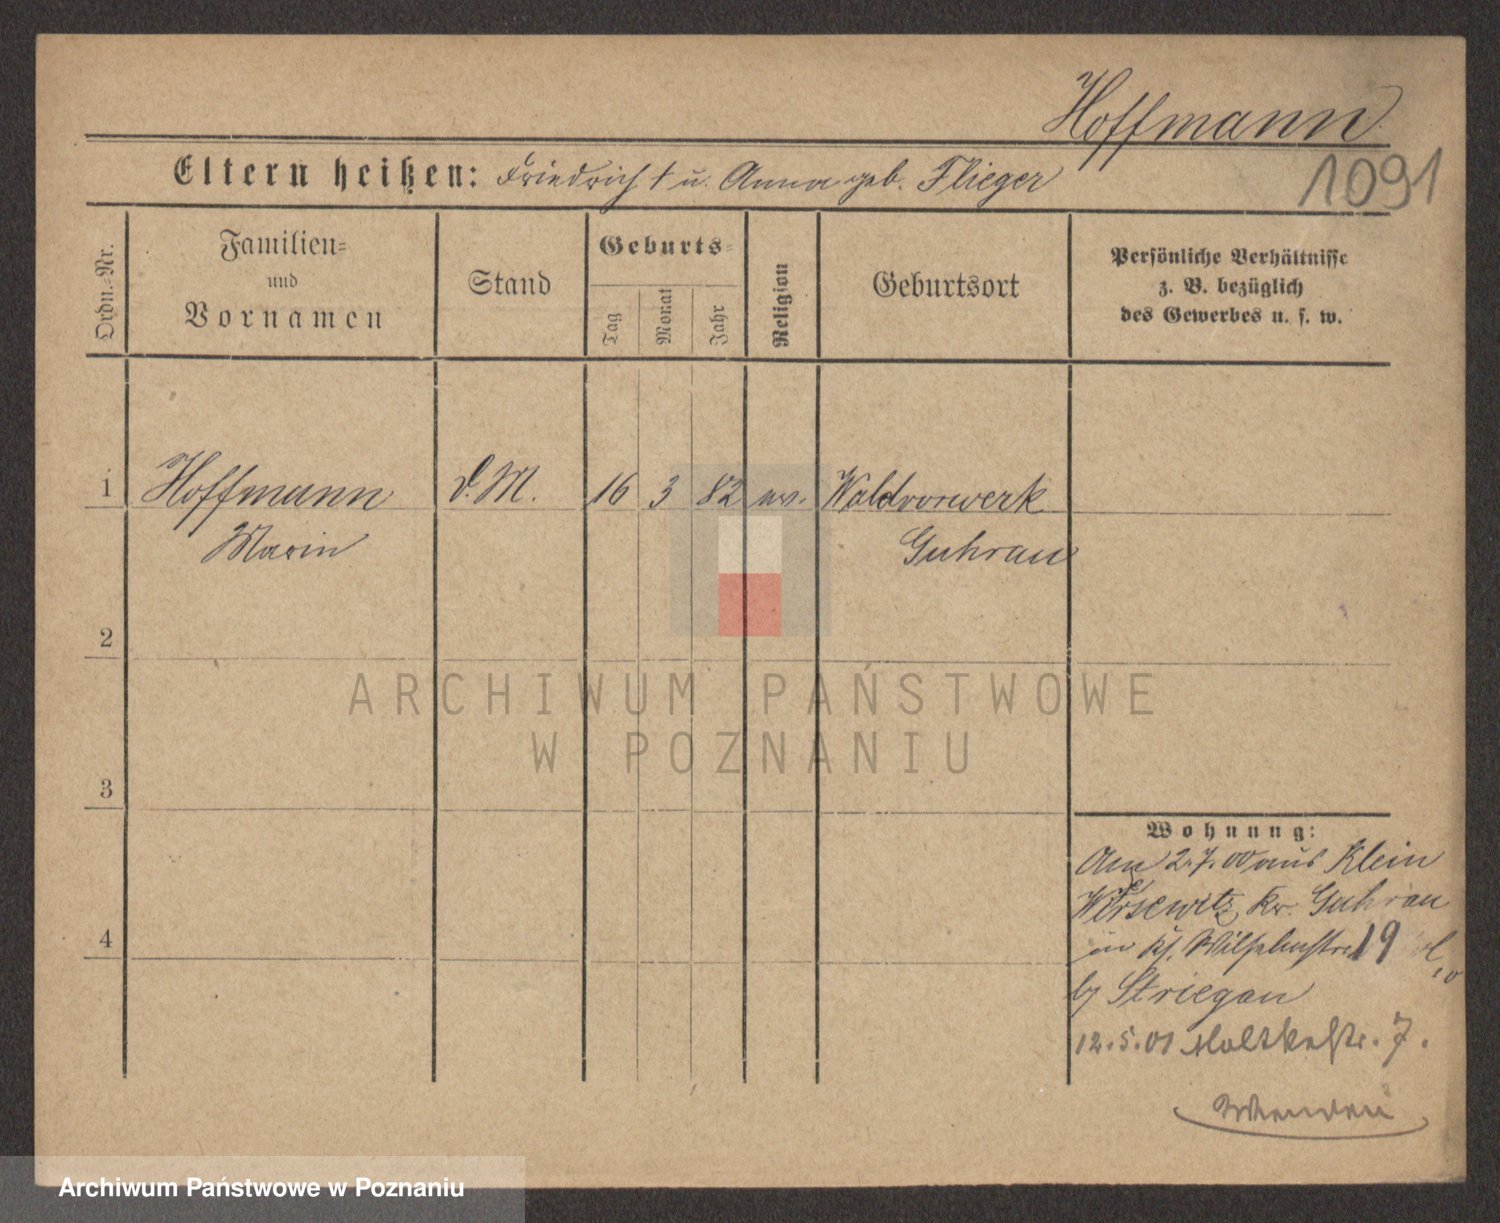 Hoffmann
1091
Eltern heißen: Friedrich † u. Anna geb. Flieger
Ordn.-Nr.
Familien-
und
Vornamen
Stand
Geburts-
Tag
Monat
Jahr
Religion
Geburtsort
Persönliche Verhältnisse
z. B. bezüglich
des Gewerbes u. s. w.
1 Hoffmann d. M. 16 3 82 ev. Waldvorwerk
Marie Guhrau
2
ARCHIWUM PAŃSTWOWE
W POZNANIU
3
Wohnung:
Am 2.7.00 aus Klein
Wirsewitz, Kr. Guhrau
in Wilhelmstr. 19
by Striegan
12.5.01 Moltkestr. 7.
Wenden
4
Archiwum Państwowe w Poznaniu